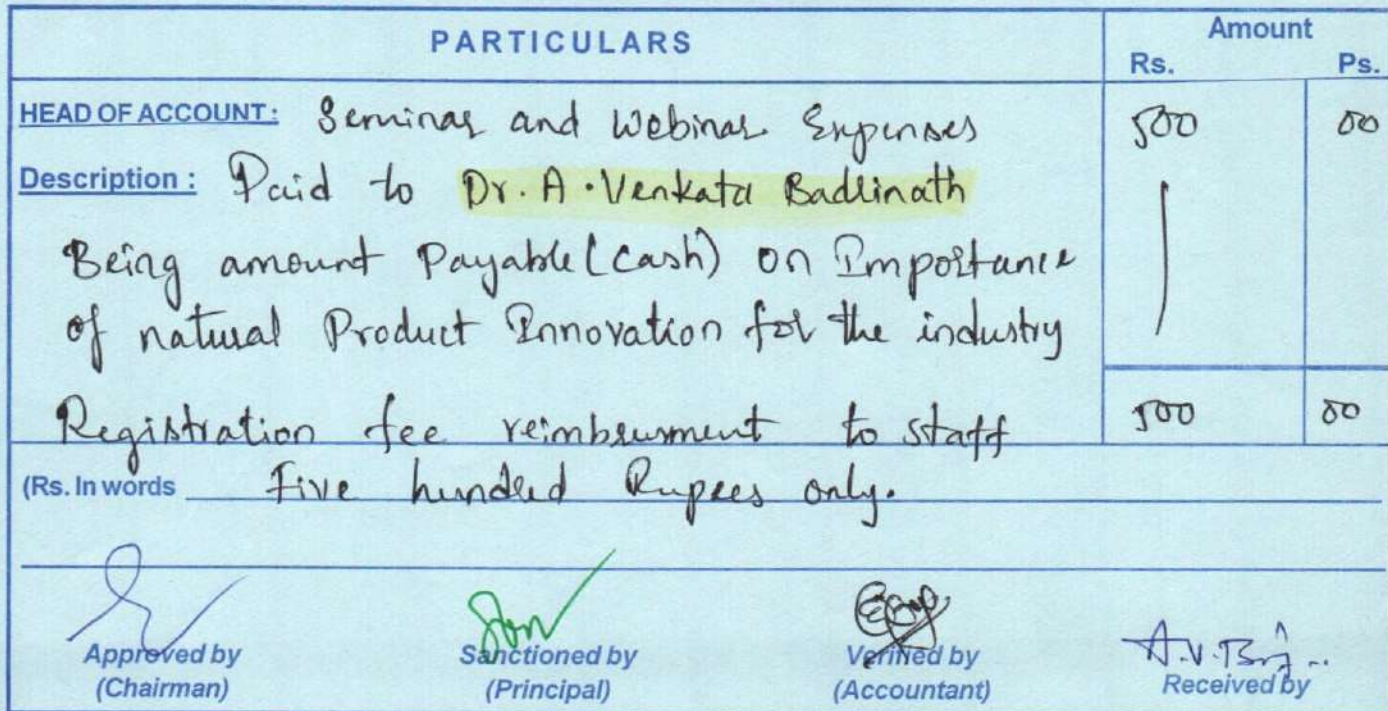 PARTICULARS
Amount
Rs. Ps.
HEAD OF ACCOUNT: Seminar and Webinar Expenses 500 00
Description: Paid to Dr. A. Venkata Badrinath
Being amount Payable (cash) on Importance
of natural Product Innovation for the industry
Registration fee reimbursment to staff 500 00
(Rs. In words Five hundred Rupees only.
Approved by Sanctioned by Verified by Received by
(Chairman) (Principal) (Accountant)